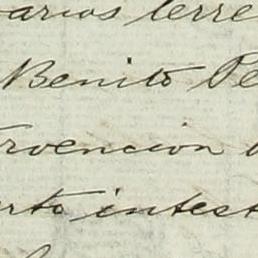 arios terre
Benito Pe
rvencion
rto intest